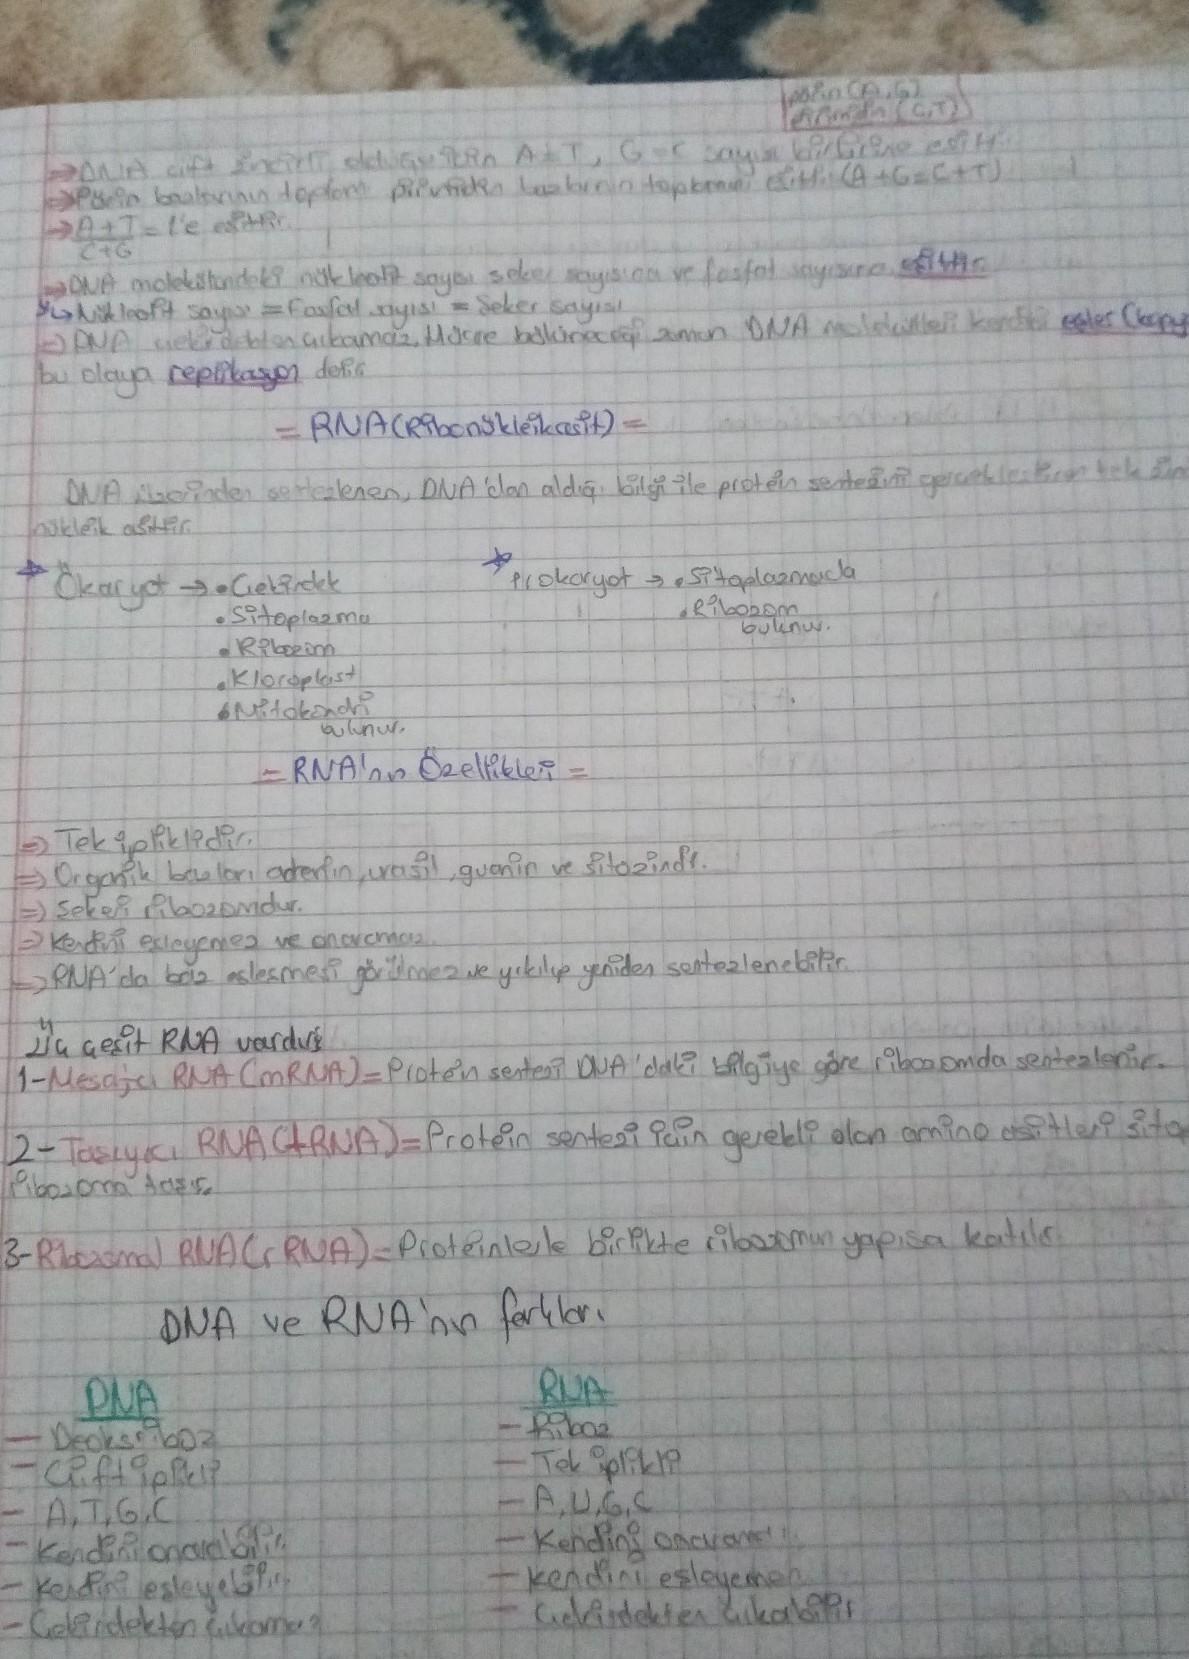 pürin (A,G)
pirimidin (C,T)
⇒ DNA çift zincirli olduğu için A=T, G=C sayısı birbirine eşittir.
⇒ Pürin bazlarının toplamı pirimidin bazlarının toplamına eşittir. (A+G=C+T)
→ A+T / C+G = 1'e eşittir.
⇒ DNA molekülündeki nükleotit sayısı şeker sayısına ve fosfat sayısına eşittir
↳ Nükleotit sayısı = Fosfat sayısı = Şeker sayısı
⇒ DNA çekirdekten çıkamaz. Hücre bölüneceği zaman DNA molekülleri kendini eşler
bu olaya replikasyon denir
= RNA (Ribonükleikasit) =
DNA üzerinden sentezlenen, DNA'dan aldığı bilgi ile protein sentezini gerçekleştiren tek
nükleik asittir.
Ökaryot → • Çekirdek
• Sitoplazma
• Ribozom
• Kloroplast
• Mitokondri
bulunur.
Prokaryot → • Sitoplazmada
• Ribozom
bulunur.
= RNA'nın Özellikleri =
⇒ Tek ipliklidir.
⇒ Organik bazları adenin, urasil, guanin ve sitozindir.
⇒ Şekeri ribozomdur.
⇒ Kendini eşleyemez ve onaramaz.
⇒ RNA'da baz eşleşmesi görülmez ve yıkılıp yeniden sentezlenebilir.
Üç çeşit RNA vardır;
1- Mesajcı RNA (mRNA) = Protein sentezi DNA'daki bilgiye göre ribozomda sentezlenir.
2- Taşıyıcı RNA (tRNA) = Protein sentezi için gerekli olan amino asitleri
ribozoma taşır.
3- Ribozomal RNA (rRNA) = Proteinlerle birlikte ribozomun yapısına katılır.
DNA ve RNA'nın farkları
DNA
- Deoksiriboz
- Çift iplikli
- A, T, G, C
- Kendini onarabilir.
- Kendini eşleyebilir.
- Çekirdekten çıkamaz
RNA
- Riboz
- Tek iplikli
- A, U, G, C
- Kendini onaramaz
- Kendini eşleyemez
- Çekirdekten çıkabilir